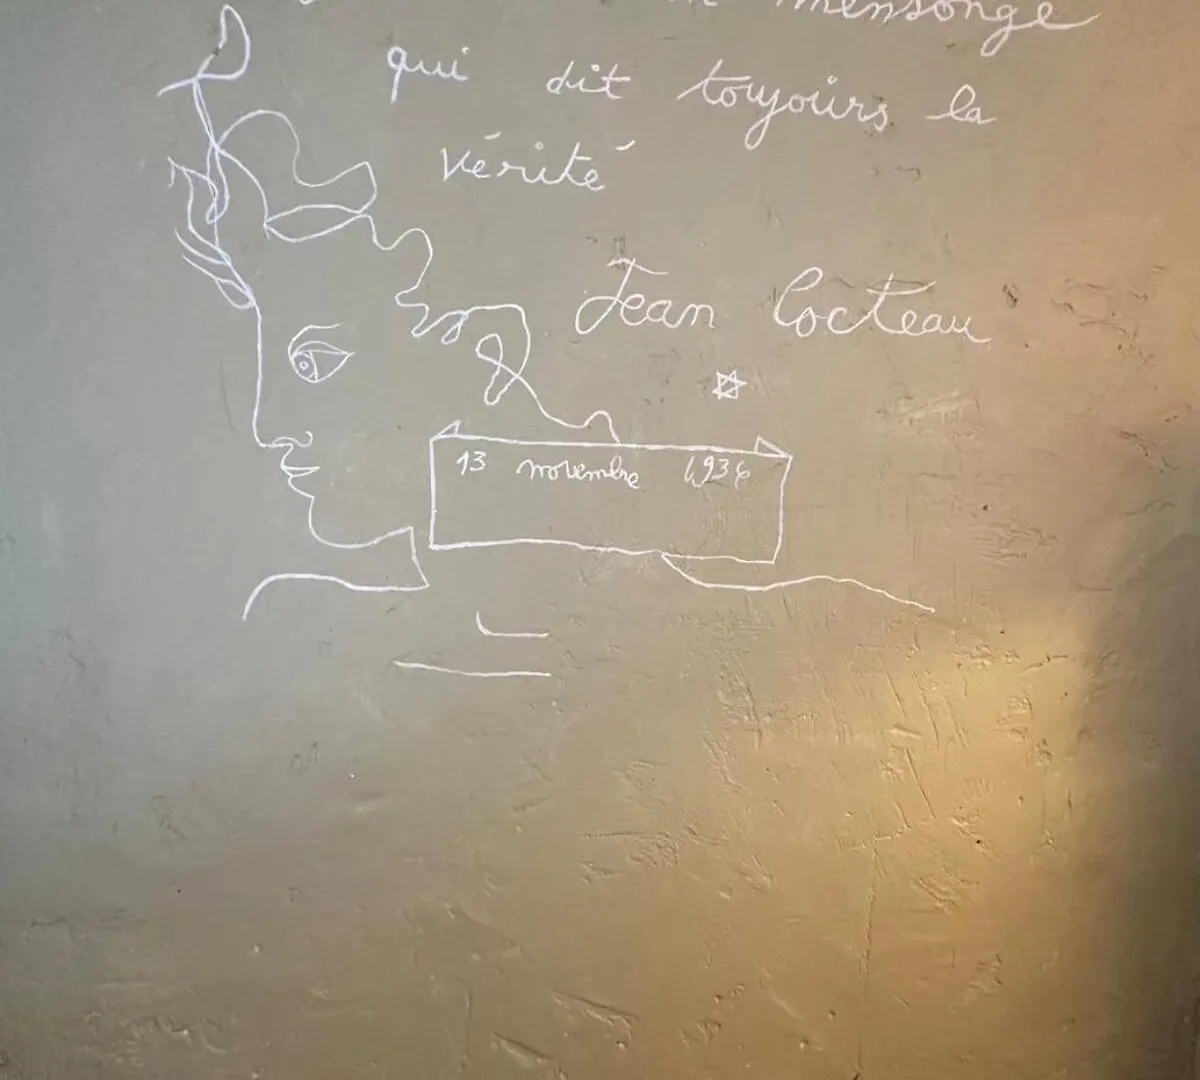 mensonge
qui dit toujours la
vérité
Jean Cocteau
13 novembre 1936